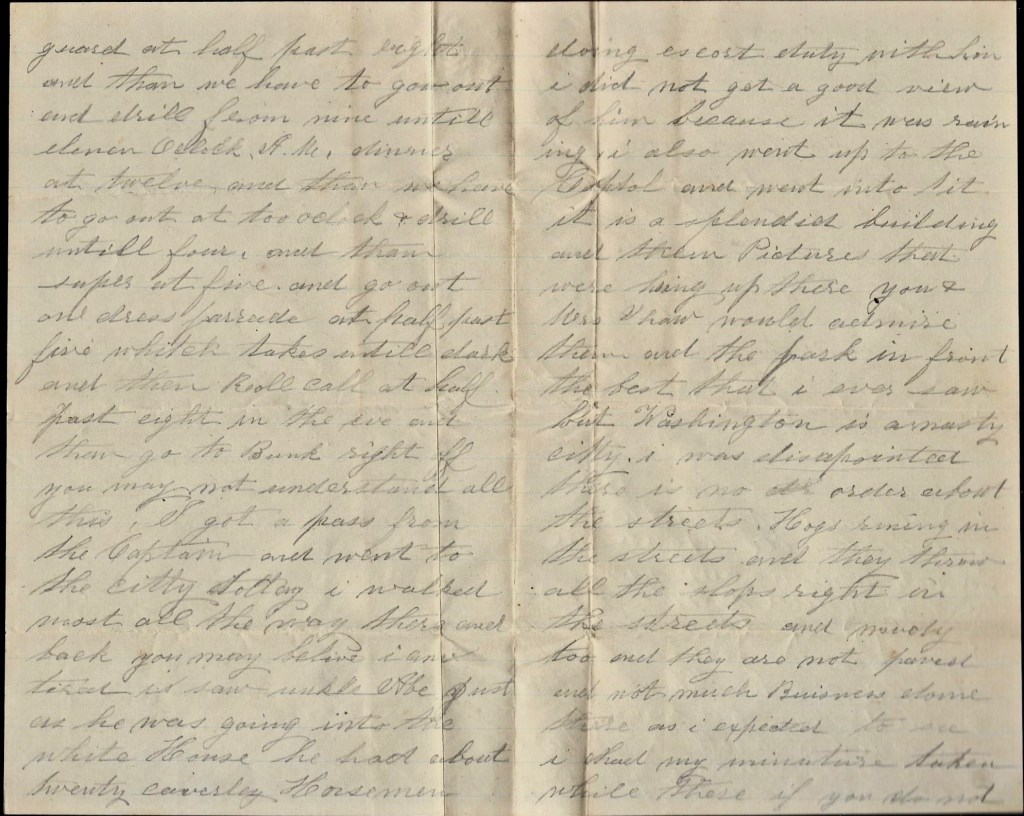 guard at half past eight
and than we have to go out
and drill from nine untill
eleven Oclock A.M. dinner
at twelve and than we have
to go out at too oclock & drill
untill four. and than
super at five. and go out
on dress parrade at half past
five whitch takes untill dark
and then Roll call at half
past eight in the eve and
than go to Bunk right off
you may not understand all
this, I got a pass from
the Captain and went to
the Citty today i walked
most all the way there and
back you may belive i am
tired i saw unkle Abe just
as he was going into the
white House he had about
twenty caverley Horsemen
doing escort duty with him
i did not get a good view
of him because it was rain
ing. i also went up to the
Capitol and went into it
it is a splendid building
and them Pictures that
were hung up there you &
Mrs Thaw would admire
them and the park in front
the best that i ever saw
but Washington is a nasty
citty. i was disapointed
there is no order about
the streets. Hogs runing in
the streets and they throw
all the slops right in
the streets and
too and they are not paved
and not much Buisness done
there as i expected to see
i had my minature taken
while there if you do not